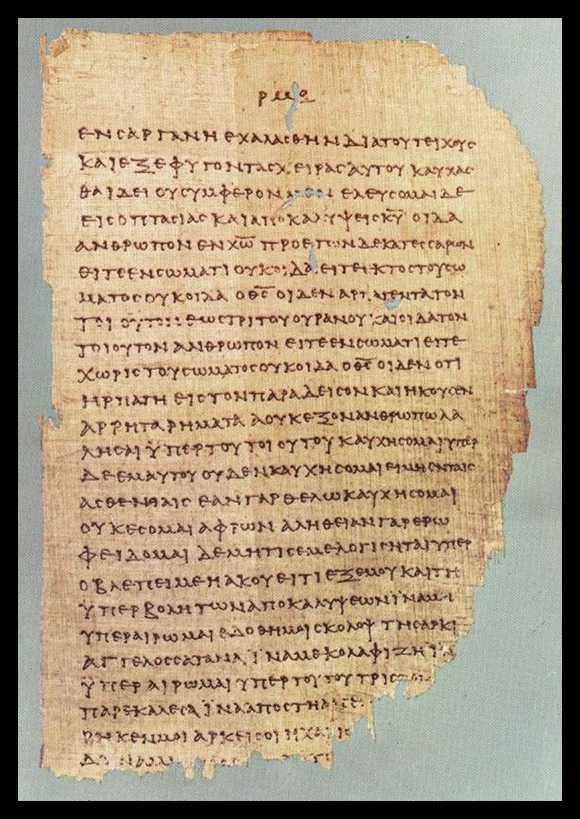 ΡΜΕ
ΕΝ ΣΑΡΓΑΝΗ ΕΧΑΛΑΣΘΗΝ ΔΙΑ ΤΟΥ ΤΕΙΧΟΥΣ
ΚΑΙ ΕΞΕΦΥΓΟΝ ΤΑΣ ΧΕΙΡΑΣ ΑΥΤΟΥ ΚΑΥΧΑΣ
ΘΑΙ ΔΕΙ ΟΥ ΣΥΜΦΕΡΟΝ ΕΛΕΥΣΟΜΑΙ ΔΕ
ΕΙΣ ΟΠΤΑΣΙΑΣ ΚΑΙ ΑΠΟΚΑΛΥΨΕΙΣ Κ̅Υ̅ ΟΙΔΑ
ΑΝΘΡΩΠΟΝ ΕΝ Χ̅Ω̅ ΠΡΟ ΕΤΩΝ ΔΕΚΑΤΕΣΣΑΡΩΝ
ΕΙΤΕ ΕΝ ΣΩΜΑΤΙ ΟΥΚ ΟΙΔΑ ΕΙΤΕ ΕΚΤΟΣ ΤΟΥ ΣΩ
ΜΑΤΟΣ ΟΥΚ ΟΙΔΑ Ο Θ̅Σ̅ ΟΙΔΕΝ ΑΡΠΑΓΕΝΤΑ ΤΟΝ
ΤΟΙΟΥΤΟΝ ΕΩΣ ΤΡΙΤΟΥ ΟΥΡΑΝΟΥ ΚΑΙ ΟΙΔΑ ΤΟΝ
ΤΟΙΟΥΤΟΝ ΑΝΘΡΩΠΟΝ ΕΙΤΕ ΕΝ ΣΩΜΑΤΙ ΕΙΤΕ
ΧΩΡΙΣ ΤΟΥ ΣΩΜΑΤΟΣ ΟΥΚ ΟΙΔΑ Ο Θ̅Σ̅ ΟΙΔΕΝ ΟΤΙ
ΗΡΠΑΓΗ ΕΙΣ ΤΟΝ ΠΑΡΑΔΕΙΣΟΝ ΚΑΙ ΗΚΟΥΣΕΝ
ΑΡΡΗΤΑ ΡΗΜΑΤΑ Α ΟΥΚ ΕΞΟΝ ΑΝΘΡΩΠΩ ΛΑ
ΛΗΣΑΙ ΫΠΕΡ ΤΟΥ ΤΟΙΟΥΤΟΥ ΚΑΥΧΗΣΟΜΑΙ ΥΠΕΡ
ΔΕ ΕΜΑΥΤΟΥ ΟΥΔΕΝ ΚΑΥΧΗΣΟΜΑΙ ΕΙ ΜΗ ΕΝ ΤΑΙΣ
ΑΣΘΕΝΕΙΑΙΣ ΕΑΝ ΓΑΡ ΘΕΛΩ ΚΑΥΧΗΣΟΜΑΙ
ΟΥΚ ΕΣΟΜΑΙ ΑΦΡΩΝ ΑΛΗΘΕΙΑΝ ΓΑΡ ΕΡΩ
ΦΕΙΔΟΜΑΙ ΔΕ ΜΗ ΤΙΣ ΕΜΕ ΛΟΓΙΣΗΤΑΙ ΥΠΕΡ
Ο ΒΛΕΠΕΙ ΜΕ Η ΑΚΟΥΕΙ ΤΙ ΕΞ ΕΜΟΥ ΚΑΙ ΤΗ
ΫΠΕΡΒΟΛΗ ΤΩΝ ΑΠΟΚΑΛΥΨΕΩΝ ΪΝΑ ΜΗ
ΥΠΕΡΑΙΡΩΜΑΙ ΕΔΟΘΗ ΜΟΙ ΣΚΟΛΟΨ ΤΗ ΣΑΡΚΙ
ΑΓΓΕΛΟΣ ΣΑΤΑΝΑ ΪΝΑ ΜΕ ΚΟΛΑΦΙΖΗ ΪΝΑ
ΫΠΕΡΑΙΡΩΜΑΙ ΥΠΕΡ ΤΟΥΤΟΥ ΤΡΙΣ
ΠΑΡΕΚΑΛΕΣΑ ΪΝΑ ΑΠΟΣΤΗ
ΡΗΚΕΝ ΜΟΙ ΑΡΚΕΙ ΣΟΙ Η ΧΑΡΙΣ